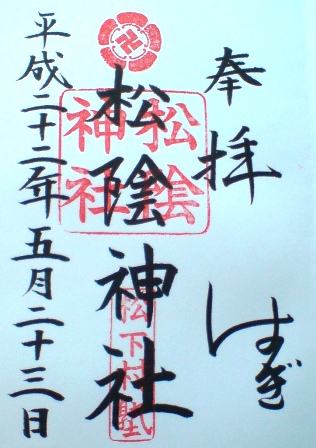 奉拝
はぎ
松陰神社
松陰神社
松下村塾
平成二十二年五月二十三日